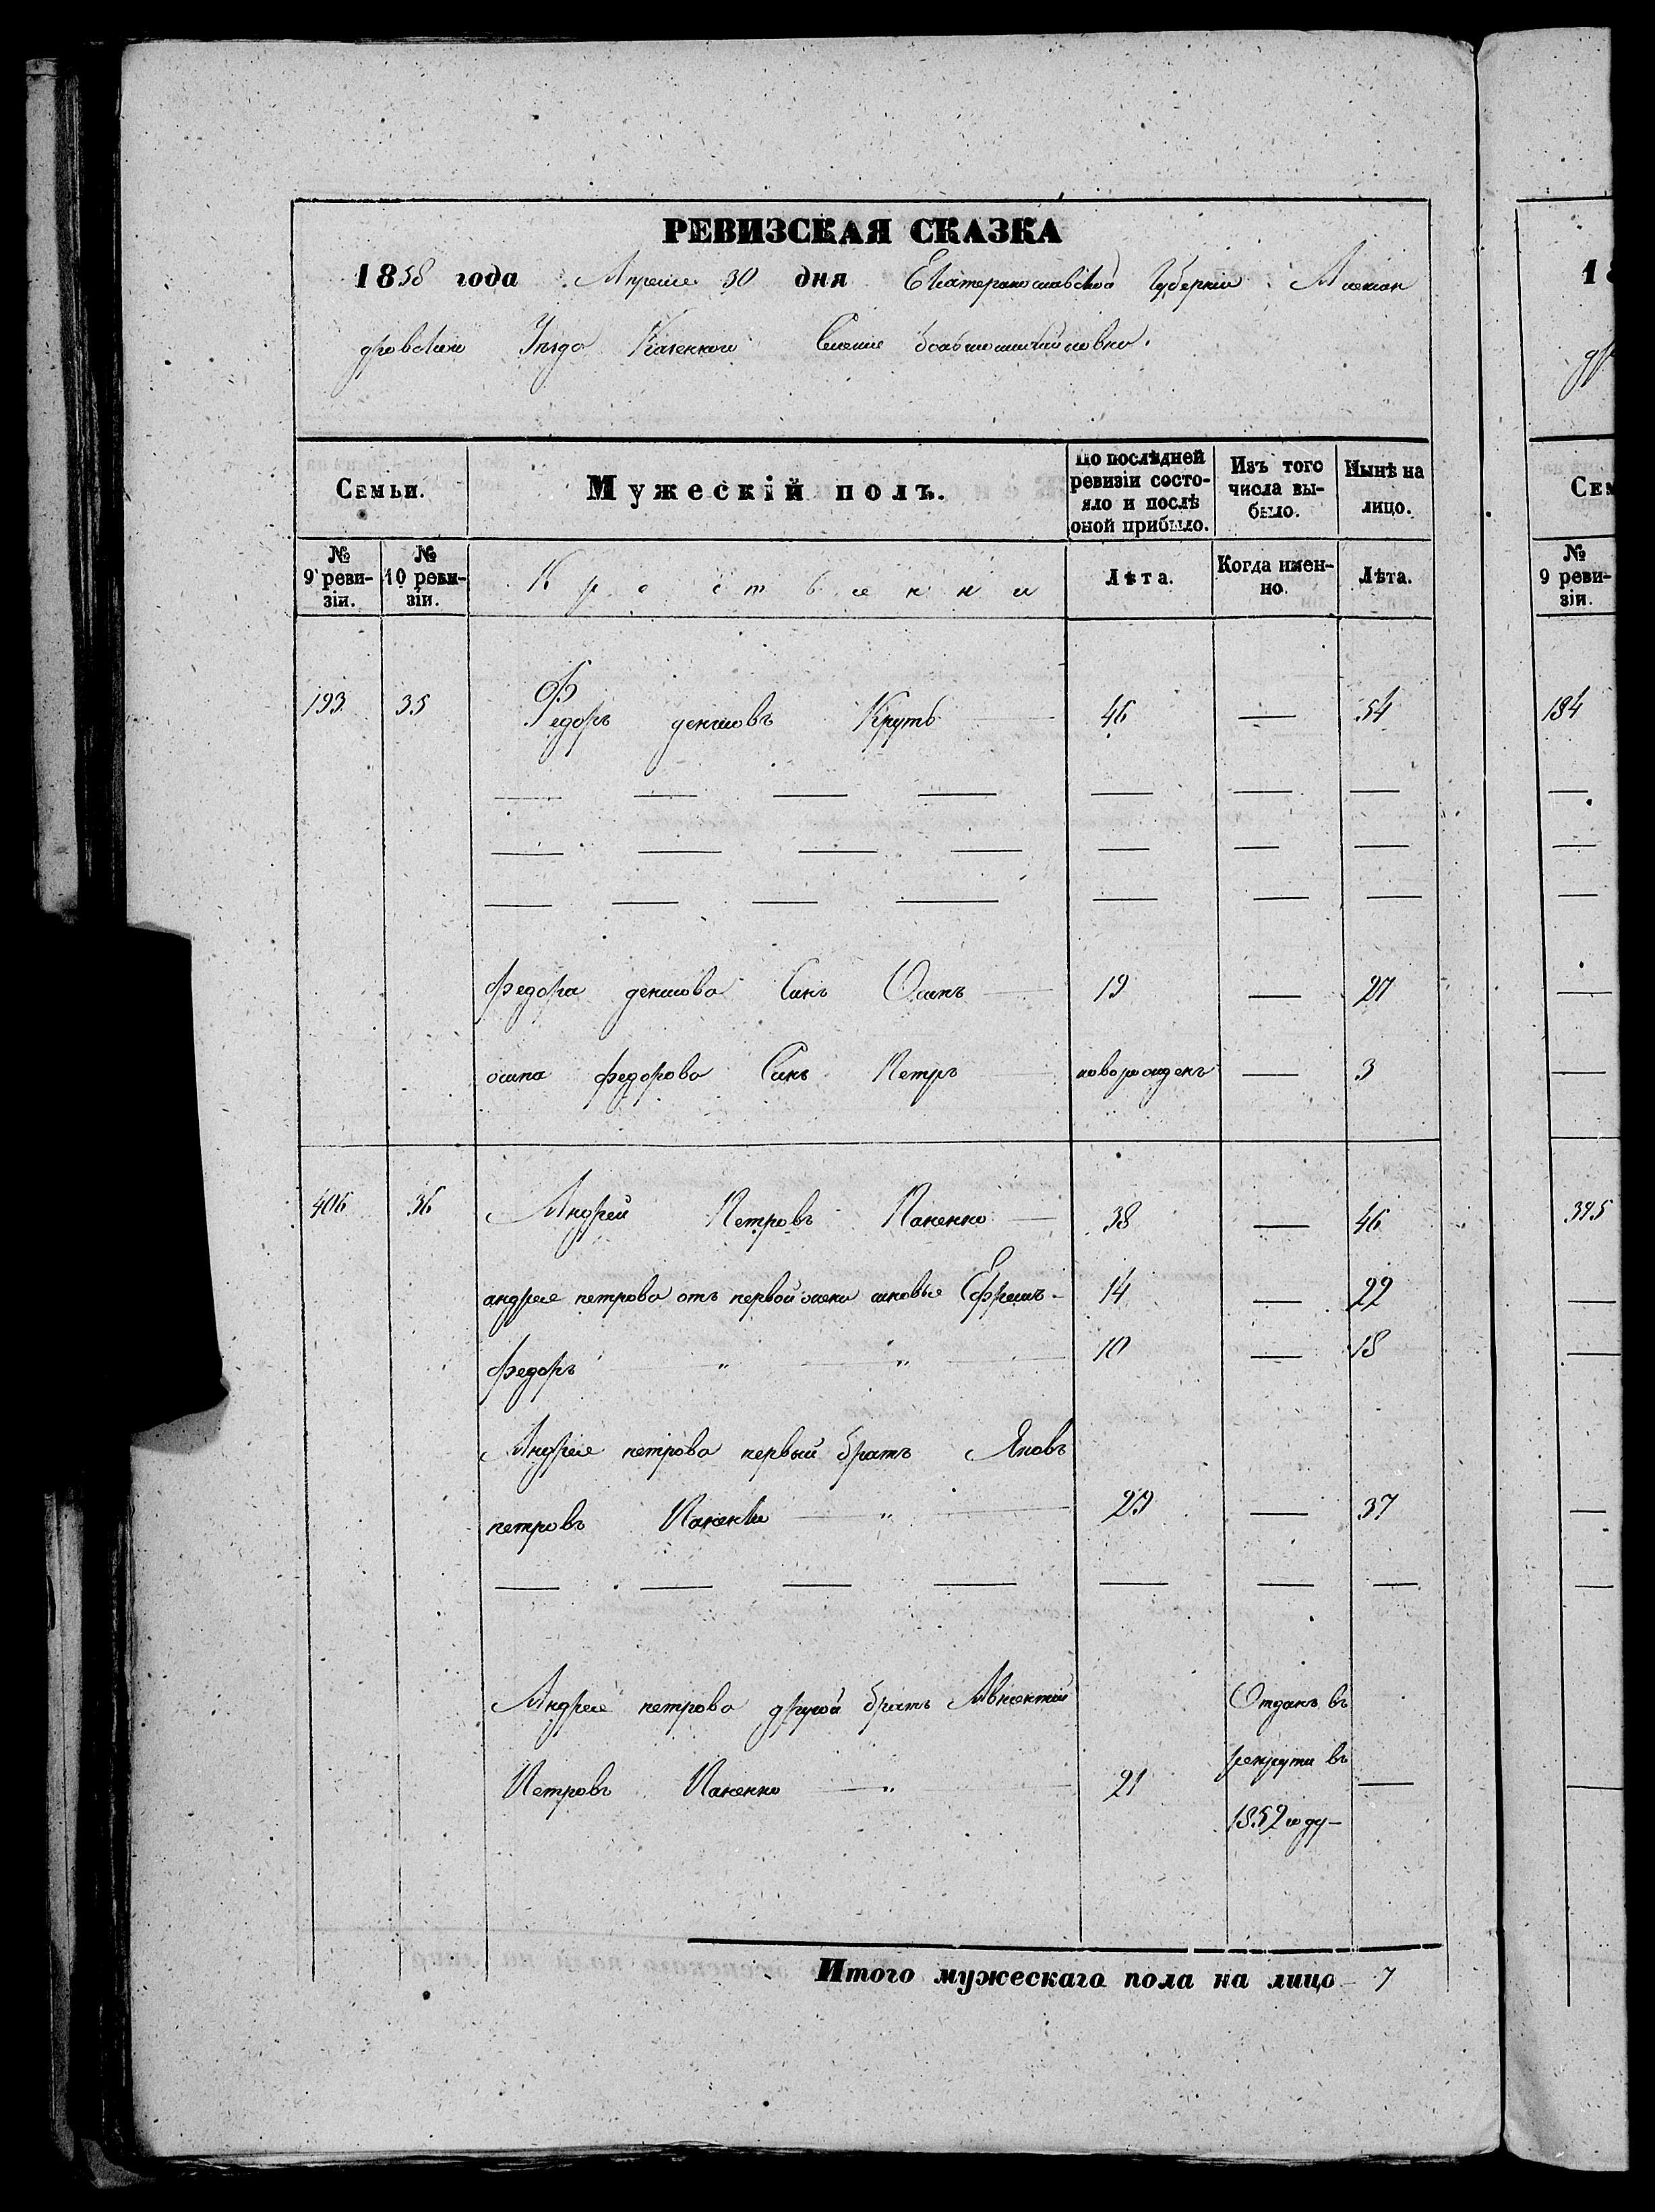 РЕВИЗСКАЯ СКАЗКА
1858 года Апреля 30 дня Екатеринославской Губернии Алексан
дровского Уезда Казенного Селения
Семьи. Мужескій полъ. По послѣдней ревизіи состояло и послѣ оной прибыло. Изъ того числа выбыло. Нынѣ на лицо.
№ 9 ревизіи. № 10 ревизіи. Лѣта. Когда именно. Лѣта.
193 35 Федоръ Крутъ 46 — 54
— — — — — — —
— — — — — — —
— — — — — — —
федора Синъ Осипъ — 19 — 27
осипа федорова Синъ Петръ — новорожденъ — 3
406 36 Андрей Петровъ Паненко — 38 — 46
андрея петрова отъ первой жени синовья Ефремъ - 14 — 22
федоръ — " — " — 10 — 18
Андрея петрова первый братъ Яковъ
петровъ Паненко — " — 29 — 37
— — — — — — —
Андрея петрова другой братъ Авксентий Отданъ въ
Петровъ Паненко — " — 21 рекрути въ —
1852 году -
Итого мужескаго пола на лицо - 7
18
др
Сем
№ 9 ревизіи.
184
395